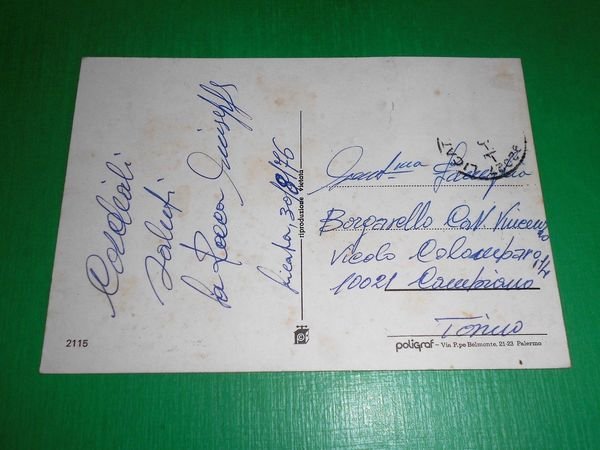 Cordiali
Saluti
La Rocca Giuseppe
Licata, 30/8/76
riproduzione vietata
LICATA
Gent.ma Famiglia
Borgarello Cav. Vincenzo
Vicolo Colombaro,
10021 Cambiano
Torino
2115
poligraf – Via P.pe Belmonte, 21-23 Palermo